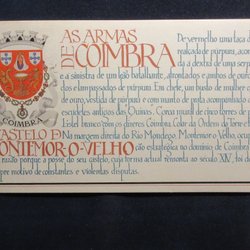 AS ARMAS
DE COIMBRA
De vermelho uma taça d
realçada de púrpura, acom
da a dextra de uma serpe
e a sinistra de um leão batalhante, afrontados e ambos de ouro
e lampassados de púrpura. Em chefe, um busto de mulher
de ouro, vestida de púrpura e com manto de
escudetes antigos das Quinas. Coroa mural de cinco torres de
Listel branco com os dizeres Coimbra. Colar da Ordem da Torre e
COIMBRA
CASTELO D
MONTEMOR-O-VELHO
Na margem direita do Rio Mondego, Montemor-o-Velho, ocu
estratégica no domínio de Coimbra,
razão porque a posse do seu castelo, cuja forma actual remonta ao século XIV, foi
pre motivo de constantes e violentas disputas.